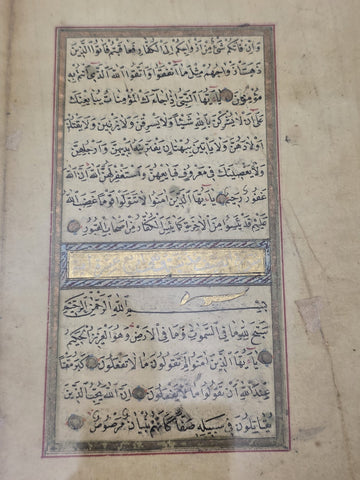 وَإِنْ فَاتَكُمْ شَيْءٌ مِنْ أَزْوَاجِكُمْ إِلَى الْكُفَّارِ فَعَاقَبْتُمْ فَآتُوا الَّذِينَ
ذَهَبَتْ أَزْوَاجُهُمْ مِثْلَ مَا أَنْفَقُوا وَاتَّقُوا اللَّهَ الَّذِي أَنْتُمْ بِهِ
مُؤْمِنُونَ يَا أَيُّهَا النَّبِيُّ إِذَا جَاءَكَ الْمُؤْمِنَاتُ يُبَايِعْنَكَ
عَلَى أَنْ لَا يُشْرِكْنَ بِاللَّهِ شَيْئًا وَلَا يَسْرِقْنَ وَلَا يَزْنِينَ وَلَا يَقْتُلْنَ
أَوْلَادَهُنَّ وَلَا يَأْتِينَ بِبُهْتَانٍ يَفْتَرِينَهُ بَيْنَ أَيْدِيهِنَّ وَأَرْجُلِهِنَّ
وَلَا يَعْصِينَكَ فِي مَعْرُوفٍ فَبَايِعْهُنَّ وَاسْتَغْفِرْ لَهُنَّ اللَّهَ إِنَّ اللَّهَ
غَفُورٌ رَحِيمٌ يَا أَيُّهَا الَّذِينَ آمَنُوا لَا تَتَوَلَّوْا قَوْمًا غَضِبَ اللَّهُ
عَلَيْهِمْ قَدْ يَئِسُوا مِنَ الْآخِرَةِ كَمَا يَئِسَ الْكُفَّارُ مِنْ أَصْحَابِ الْقُبُورِ
بِسْمِ اللَّهِ الرَّحْمَنِ الرَّحِيمِ
سَبَّحَ لِلَّهِ مَا فِي السَّمَوَاتِ وَمَا فِي الْأَرْضِ وَهُوَ الْعَزِيزُ الْحَكِيمُ
يَا أَيُّهَا الَّذِينَ آمَنُوا لِمَ تَقُولُونَ مَا لَا تَفْعَلُونَ كَبُرَ مَقْتًا
عِنْدَ اللَّهِ أَنْ تَقُولُوا مَا لَا تَفْعَلُونَ إِنَّ اللَّهَ يُحِبُّ الَّذِينَ
يُقَاتِلُونَ فِي سَبِيلِهِ صَفًّا كَأَنَّهُمْ بُنْيَانٌ مَرْصُوصٌ